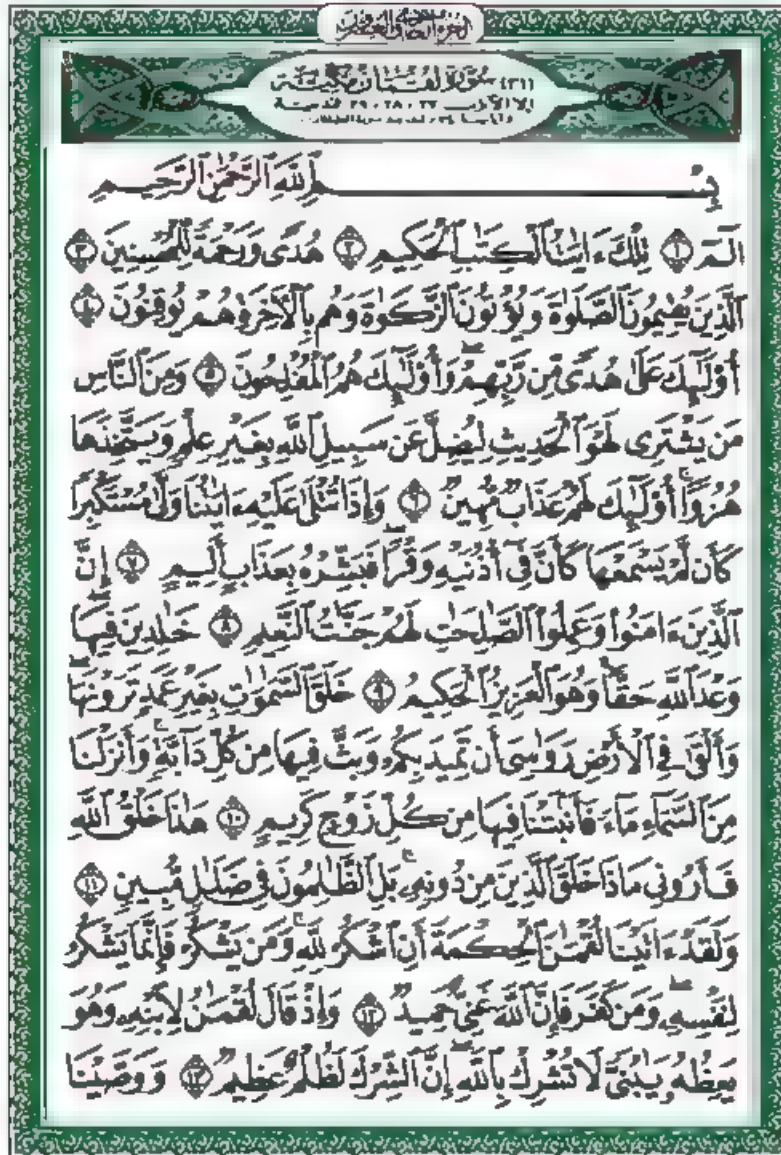 الجزء الحادى والعشرون
(٣١) سورة لقمان مكية
إلا الآيات ٢٧ و ٢٨ و ٢٩ فمدنية
وآياتها ٣٤ نزلت بعد سورة الصافات
بِسْمِ ٱللَّهِ ٱلرَّحْمَٰنِ ٱلرَّحِيمِ
الٓمٓ ﴿١﴾ تِلْكَ ءَايَٰتُ ٱلْكِتَٰبِ ٱلْحَكِيمِ ﴿٢﴾ هُدًى وَرَحْمَةً لِّلْمُحْسِنِينَ ﴿٣﴾
ٱلَّذِينَ يُقِيمُونَ ٱلصَّلَوٰةَ وَيُؤْتُونَ ٱلزَّكَوٰةَ وَهُم بِٱلْءَاخِرَةِ هُمْ يُوقِنُونَ ﴿٤﴾
أُو۟لَٰٓئِكَ عَلَىٰ هُدًى مِّن رَّبِّهِمْ ۖ وَأُو۟لَٰٓئِكَ هُمُ ٱلْمُفْلِحُونَ ﴿٥﴾ وَمِنَ ٱلنَّاسِ
مَن يَشْتَرِى لَهْوَ ٱلْحَدِيثِ لِيُضِلَّ عَن سَبِيلِ ٱللَّهِ بِغَيْرِ عِلْمٍ وَيَتَّخِذَهَا
هُزُوًا ۚ أُو۟لَٰٓئِكَ لَهُمْ عَذَابٌ مُّهِينٌ ﴿٦﴾ وَإِذَا تُتْلَىٰ عَلَيْهِ ءَايَٰتُنَا وَلَّىٰ مُسْتَكْبِرًا
كَأَن لَّمْ يَسْمَعْهَا كَأَنَّ فِىٓ أُذُنَيْهِ وَقْرًا ۖ فَبَشِّرْهُ بِعَذَابٍ أَلِيمٍ ﴿٧﴾ إِنَّ
ٱلَّذِينَ ءَامَنُوا۟ وَعَمِلُوا۟ ٱلصَّٰلِحَٰتِ لَهُمْ جَنَّٰتُ ٱلنَّعِيمِ ﴿٨﴾ خَٰلِدِينَ فِيهَا ۖ
وَعْدَ ٱللَّهِ حَقًّا ۚ وَهُوَ ٱلْعَزِيزُ ٱلْحَكِيمُ ﴿٩﴾ خَلَقَ ٱلسَّمَٰوَٰتِ بِغَيْرِ عَمَدٍ تَرَوْنَهَا ۖ
وَأَلْقَىٰ فِى ٱلْأَرْضِ رَوَٰسِىَ أَن تَمِيدَ بِكُمْ وَبَثَّ فِيهَا مِن كُلِّ دَآبَّةٍ ۚ وَأَنزَلْنَا
مِنَ ٱلسَّمَآءِ مَآءً فَأَنۢبَتْنَا فِيهَا مِن كُلِّ زَوْجٍ كَرِيمٍ ﴿١٠﴾ هَٰذَا خَلْقُ ٱللَّهِ
فَأَرُونِى مَاذَا خَلَقَ ٱلَّذِينَ مِن دُونِهِۦ ۚ بَلِ ٱلظَّٰلِمُونَ فِى ضَلَٰلٍ مُّبِينٍ ﴿١١﴾
وَلَقَدْ ءَاتَيْنَا لُقْمَٰنَ ٱلْحِكْمَةَ أَنِ ٱشْكُرْ لِلَّهِ ۚ وَمَن يَشْكُرْ فَإِنَّمَا يَشْكُرُ
لِنَفْسِهِۦ ۖ وَمَن كَفَرَ فَإِنَّ ٱللَّهَ غَنِىٌّ حَمِيدٌ ﴿١٢﴾ وَإِذْ قَالَ لُقْمَٰنُ لِٱبْنِهِۦ وَهُوَ
يَعِظُهُۥ يَٰبُنَىَّ لَا تُشْرِكْ بِٱللَّهِ ۖ إِنَّ ٱلشِّرْكَ لَظُلْمٌ عَظِيمٌ ﴿١٣﴾ وَوَصَّيْنَا